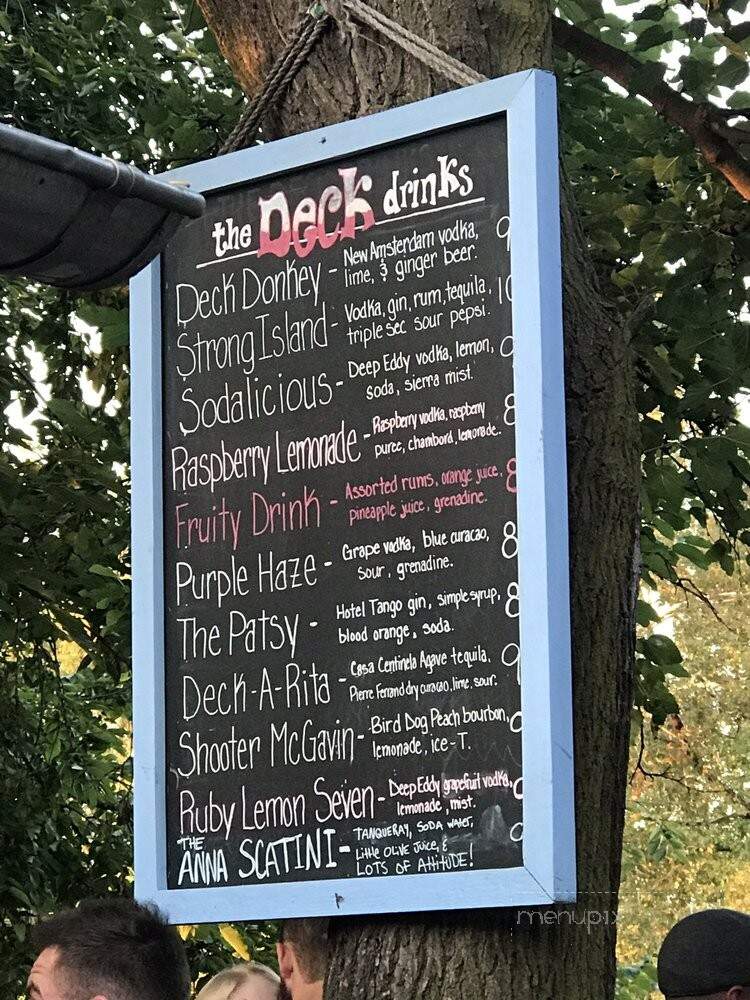 the Deck drinks
Deck Donkey - New Amsterdam vodka, 9
lime, & ginger beer.
Strong Island - Vodka, gin, rum, tequila, 10
triple sec sour pepsi.
Sodalicious - Deep Eddy vodka, lemon,
soda, sierra mist.
Raspberry Lemonade - Raspberry vodka, raspberry 8
puree, chambord, lemonade.
Fruity Drink - Assorted rums, orange juice, 8
pineapple juice, grenadine.
Purple Haze - Grape vodka, blue curacao, 8
sour, grenadine.
The Patsy - Hotel Tango gin, simple syrup, 8
blood orange, soda.
Deck-A-Rita - Casa Centinela Agave tequila, 9
Pierre Ferrand dry curacao, lime, sour.
Shooter McGavin - Bird Dog Peach bourbon,
lemonade, ice-T.
Ruby Lemon Seven - Deep Eddy grapefruit vodka,
lemonade, mist.
THE ANNA SCATINI - TANQUERAY, SODA water,
Little OLIVE Juice, &
LOTS OF AttitUDE!
menupix